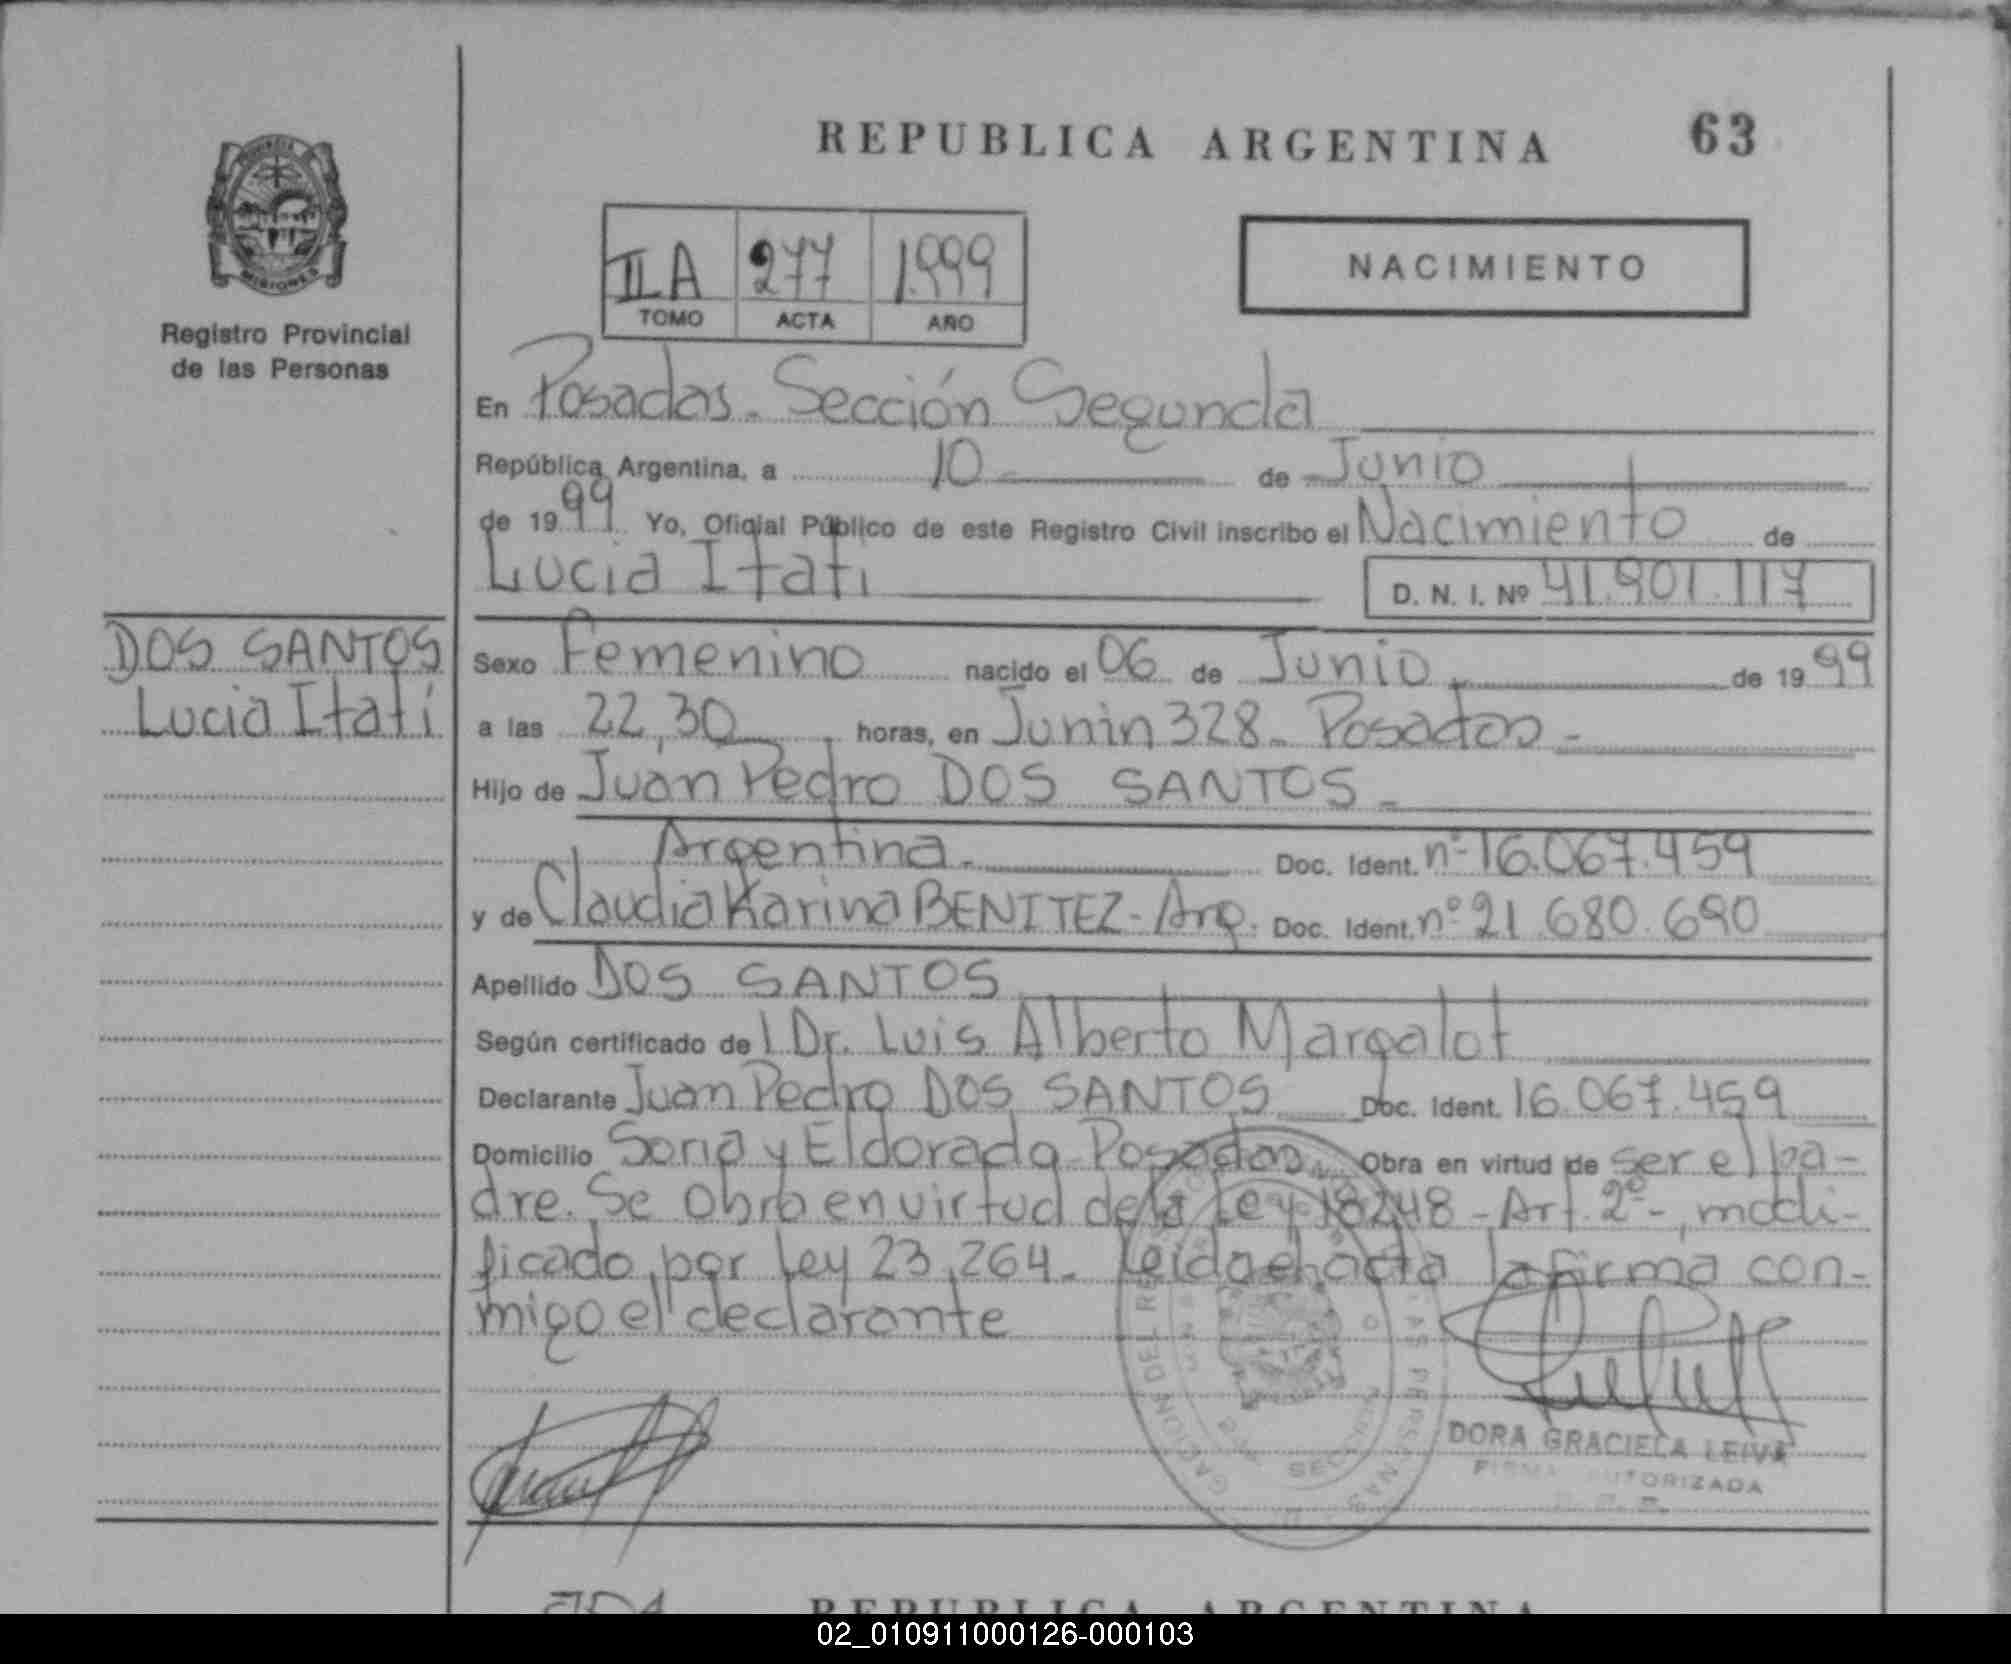 REPUBLICA ARGENTINA 63
PROVINCIA
MISIONES
Registro Provincial
de las Personas
II A 277 1.999
TOMO ACTA AÑO
NACIMIENTO
En Posadas - Sección Segunda
República Argentina, a 10 de Junio
de 1999 Yo, Oficial Público de este Registro Civil inscribo el Nacimiento de
Lucia Itatí D. N. I. Nº 41.901.117
DOS SANTOS
Lucia Itatí
Sexo Femenino nacido el 06 de Junio de 1999
a las 22,30 horas, en Junin 328 - Posadas -
Hijo de Juan Pedro DOS SANTOS -
Argentina - Doc. Ident. nº 16.067.459
y de Claudia Karina BENITEZ - Arg. Doc. Ident. nº 21.680.690
Apellido DOS SANTOS
Según certificado de l Dr. Luis Alberto Margalot
Declarante Juan Pedro DOS SANTOS Doc. Ident. 16.067.459
Domicilio Soria y Eldorado - Posadas Obra en virtud de ser el pa-
dre. Se obra en virtud de la Ley 18248 - Art. 2º -, modi-
ficado por Ley 23.264 - Leida el acta la firma con-
migo el declarante
DORA GRACIELA LEIVA
FIRMA AUTORIZADA
REPUBLICA ARGENTINA
02_010911000126-000103